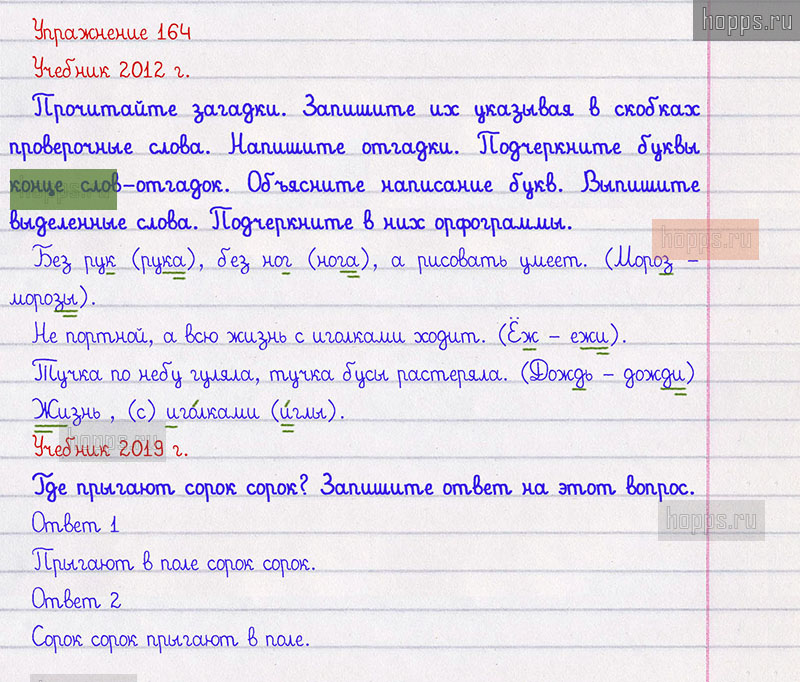 hopps.ru
Упражнение 164
Учебник 2012 г.
Прочитайте загадки. Запишите их указывая в скобках
проверочные слова. Напишите отгадки. Подчеркните буквы
конце слов-отгадок. Объясните написание букв. Выпишите
выделенные слова. Подчеркните в них орфограммы.
hopps.ru
Без рук (рука), без ног (нога), а рисовать умеет. (Мороз –
морозы).
Не портной, а всю жизнь с иголками ходит. (Ёж – ежи).
Тучка по небу гуляла, тучка бусы растеряла. (Дождь – дожди)
Жизнь , (с) иго́лками (и́глы).
hopps.ru
Учебник 2019 г.
Где прыгают сорок сорок? Запишите ответ на этот вопрос.
hopps.ru
Ответ 1
Прыгают в поле сорок сорок.
Ответ 2
Сорок сорок прыгают в поле.